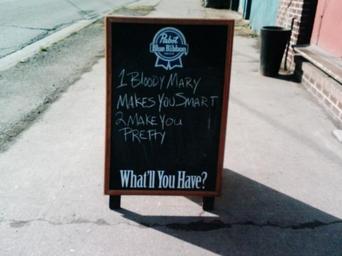 Pabst
Blue Ribbon
1 BLOODY MARY
MAKES YOU SMART
2 MAKE YOU
PRETTY
What'll You Have?